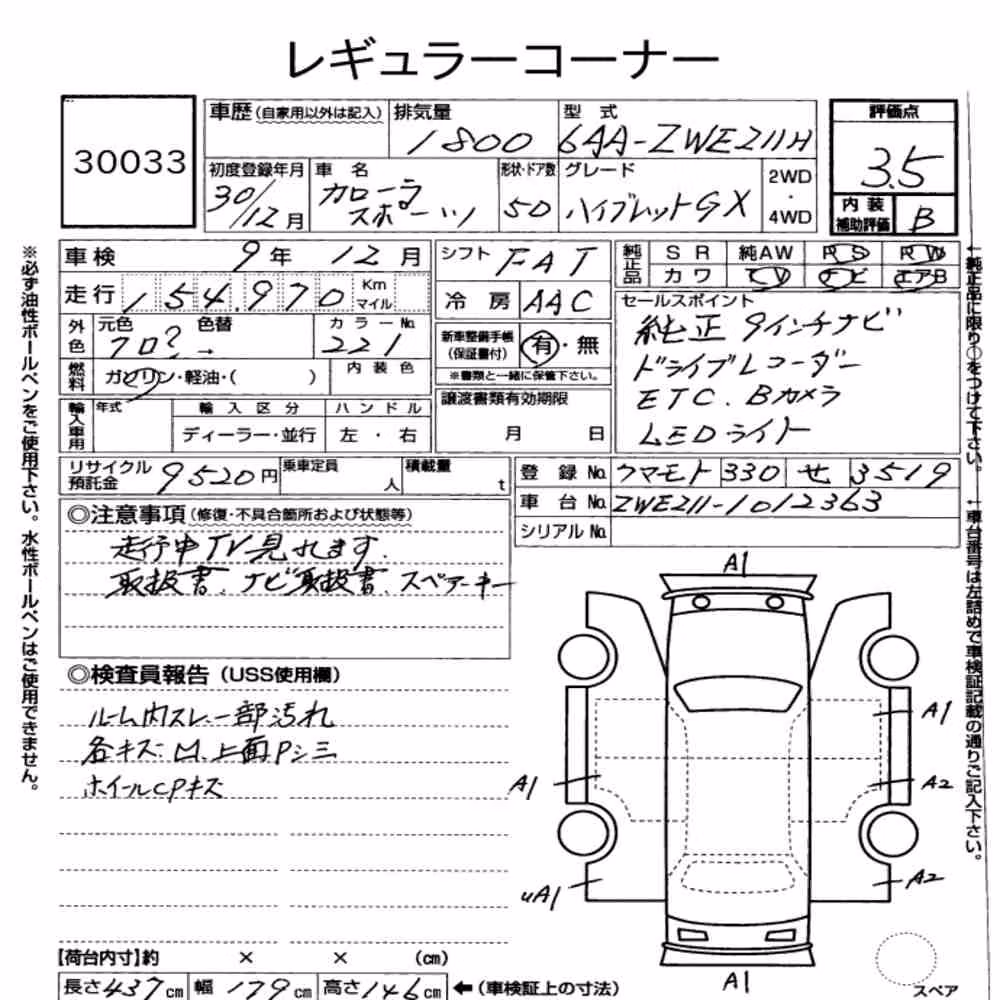 レギュラーコーナー
30033
車歴 (自家用以外は記入) 排気量 1800 型式 6AA-ZWE211H
初度登録年月 30/12月 車名 カローラスポーツ 形状・ドア数 5D グレード ハイブレットGX 2WD・4WD
評価点 3.5
内装補助評価 B
車検 9年 12月
走行 154,970 Km マイル
外色 元色 クロ? 色替 → カラーNo. 221
燃料 ガソリン・軽油・( ) 内装色
輸入車用 年式 輸入区分 ハンドル
ディーラー・並行 左・右
シフト FAT
冷房 AAC
新車整備手帳(保証書付) 有・無
※書類と一緒に保管下さい。
譲渡書類有効期限
月 日
純正品 SR 純AW PS PW
カワ TV ナビ エアB
セールスポイント
純正9インチナビ
ドライブレコーダー
ETC. Bカメラ
LEDライト
リサイクル預託金 9520円 乗車定員 人 積載量 t
登録No. クマモト 330 せ 3519
車台No. ZWE211-1012363
シリアルNo.
◎注意事項 (修復・不具合箇所および状態等)
走行中TV見れます.
取扱書、ナビ取扱書、スペアーキー
◎検査員報告 (USS使用欄)
ルーム内スレ、一部汚れ
各キズ.M.上面Pシミ
ホイールCPキズ
A1
A1
A1
A2
uA1
A2
A1
スペア
【荷台内寸】約 × × (cm)
長さ437cm 幅179cm 高さ146cm ←(車検証上の寸法)
※必ず油性ボールペンをご使用下さい。水性ボールペンはご使用できません。
←純正品に限り○をつけて下さい。
←車台番号は左詰めで車検証記載の通りご記入下さい。